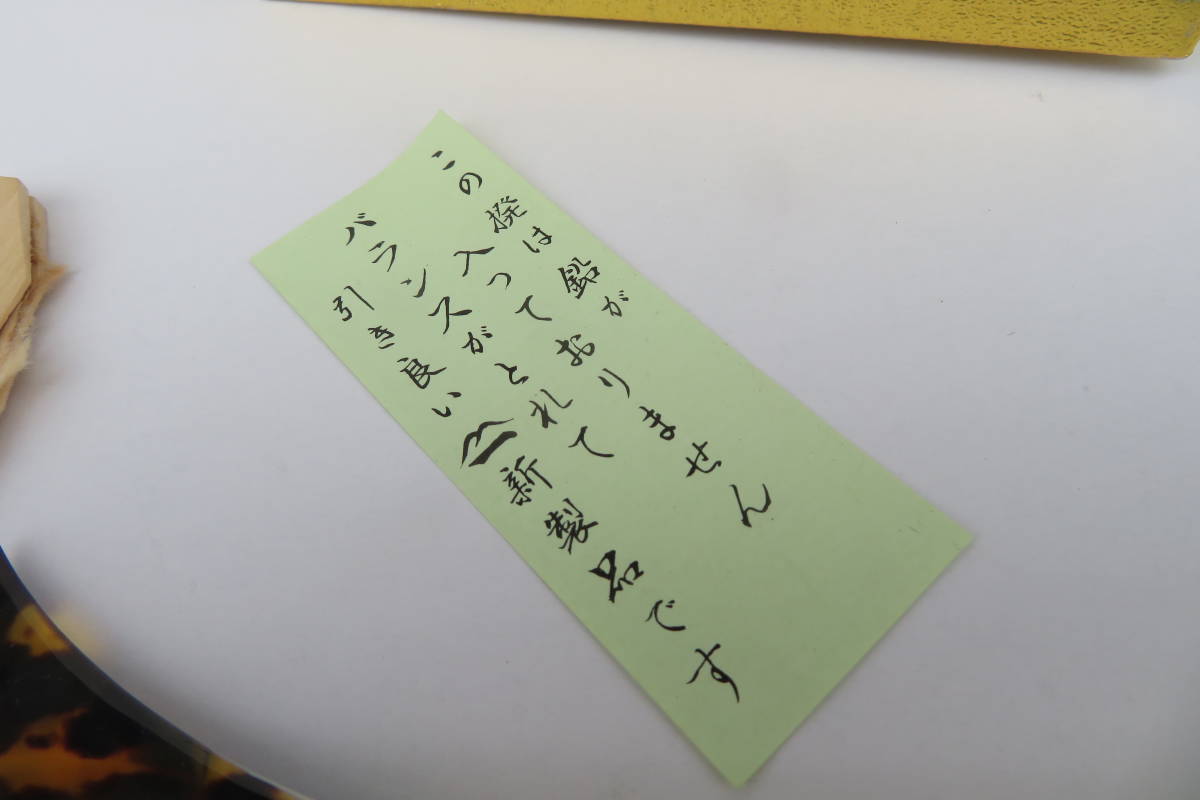 この撥は鉛が
入っておりません
バランスがとれて
引き良い新製品です